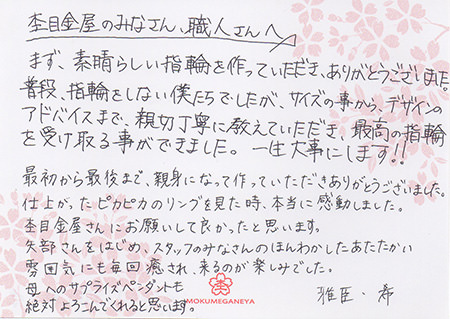 杢目金屋のみなさん、職人さんへ
まず、素晴らしい指輪を作っていただき、ありがとうございました。
普段、指輪をしない僕たちでしたが、サイズの事から、デザインの
アドバイスまで、親切丁寧に教えていただき、最高の指輪
を受け取る事ができました。一生大事にします!!
最初から最後まで、親身になって作っていただきありがとうございました。
仕上がったピカピカのリングを見た時、本当に感動しました。
杢目金屋さんにお願いして良かったと思います。
矢部さんをはじめ、スタッフのみなさんのほんわかしたあたたかい
雰囲気にも毎回癒され、来るのが楽しみでした。
母へのサプライズペンダントも
絶対よろこんでくれると思います。
MOKUMEGANEYA
雅臣・希